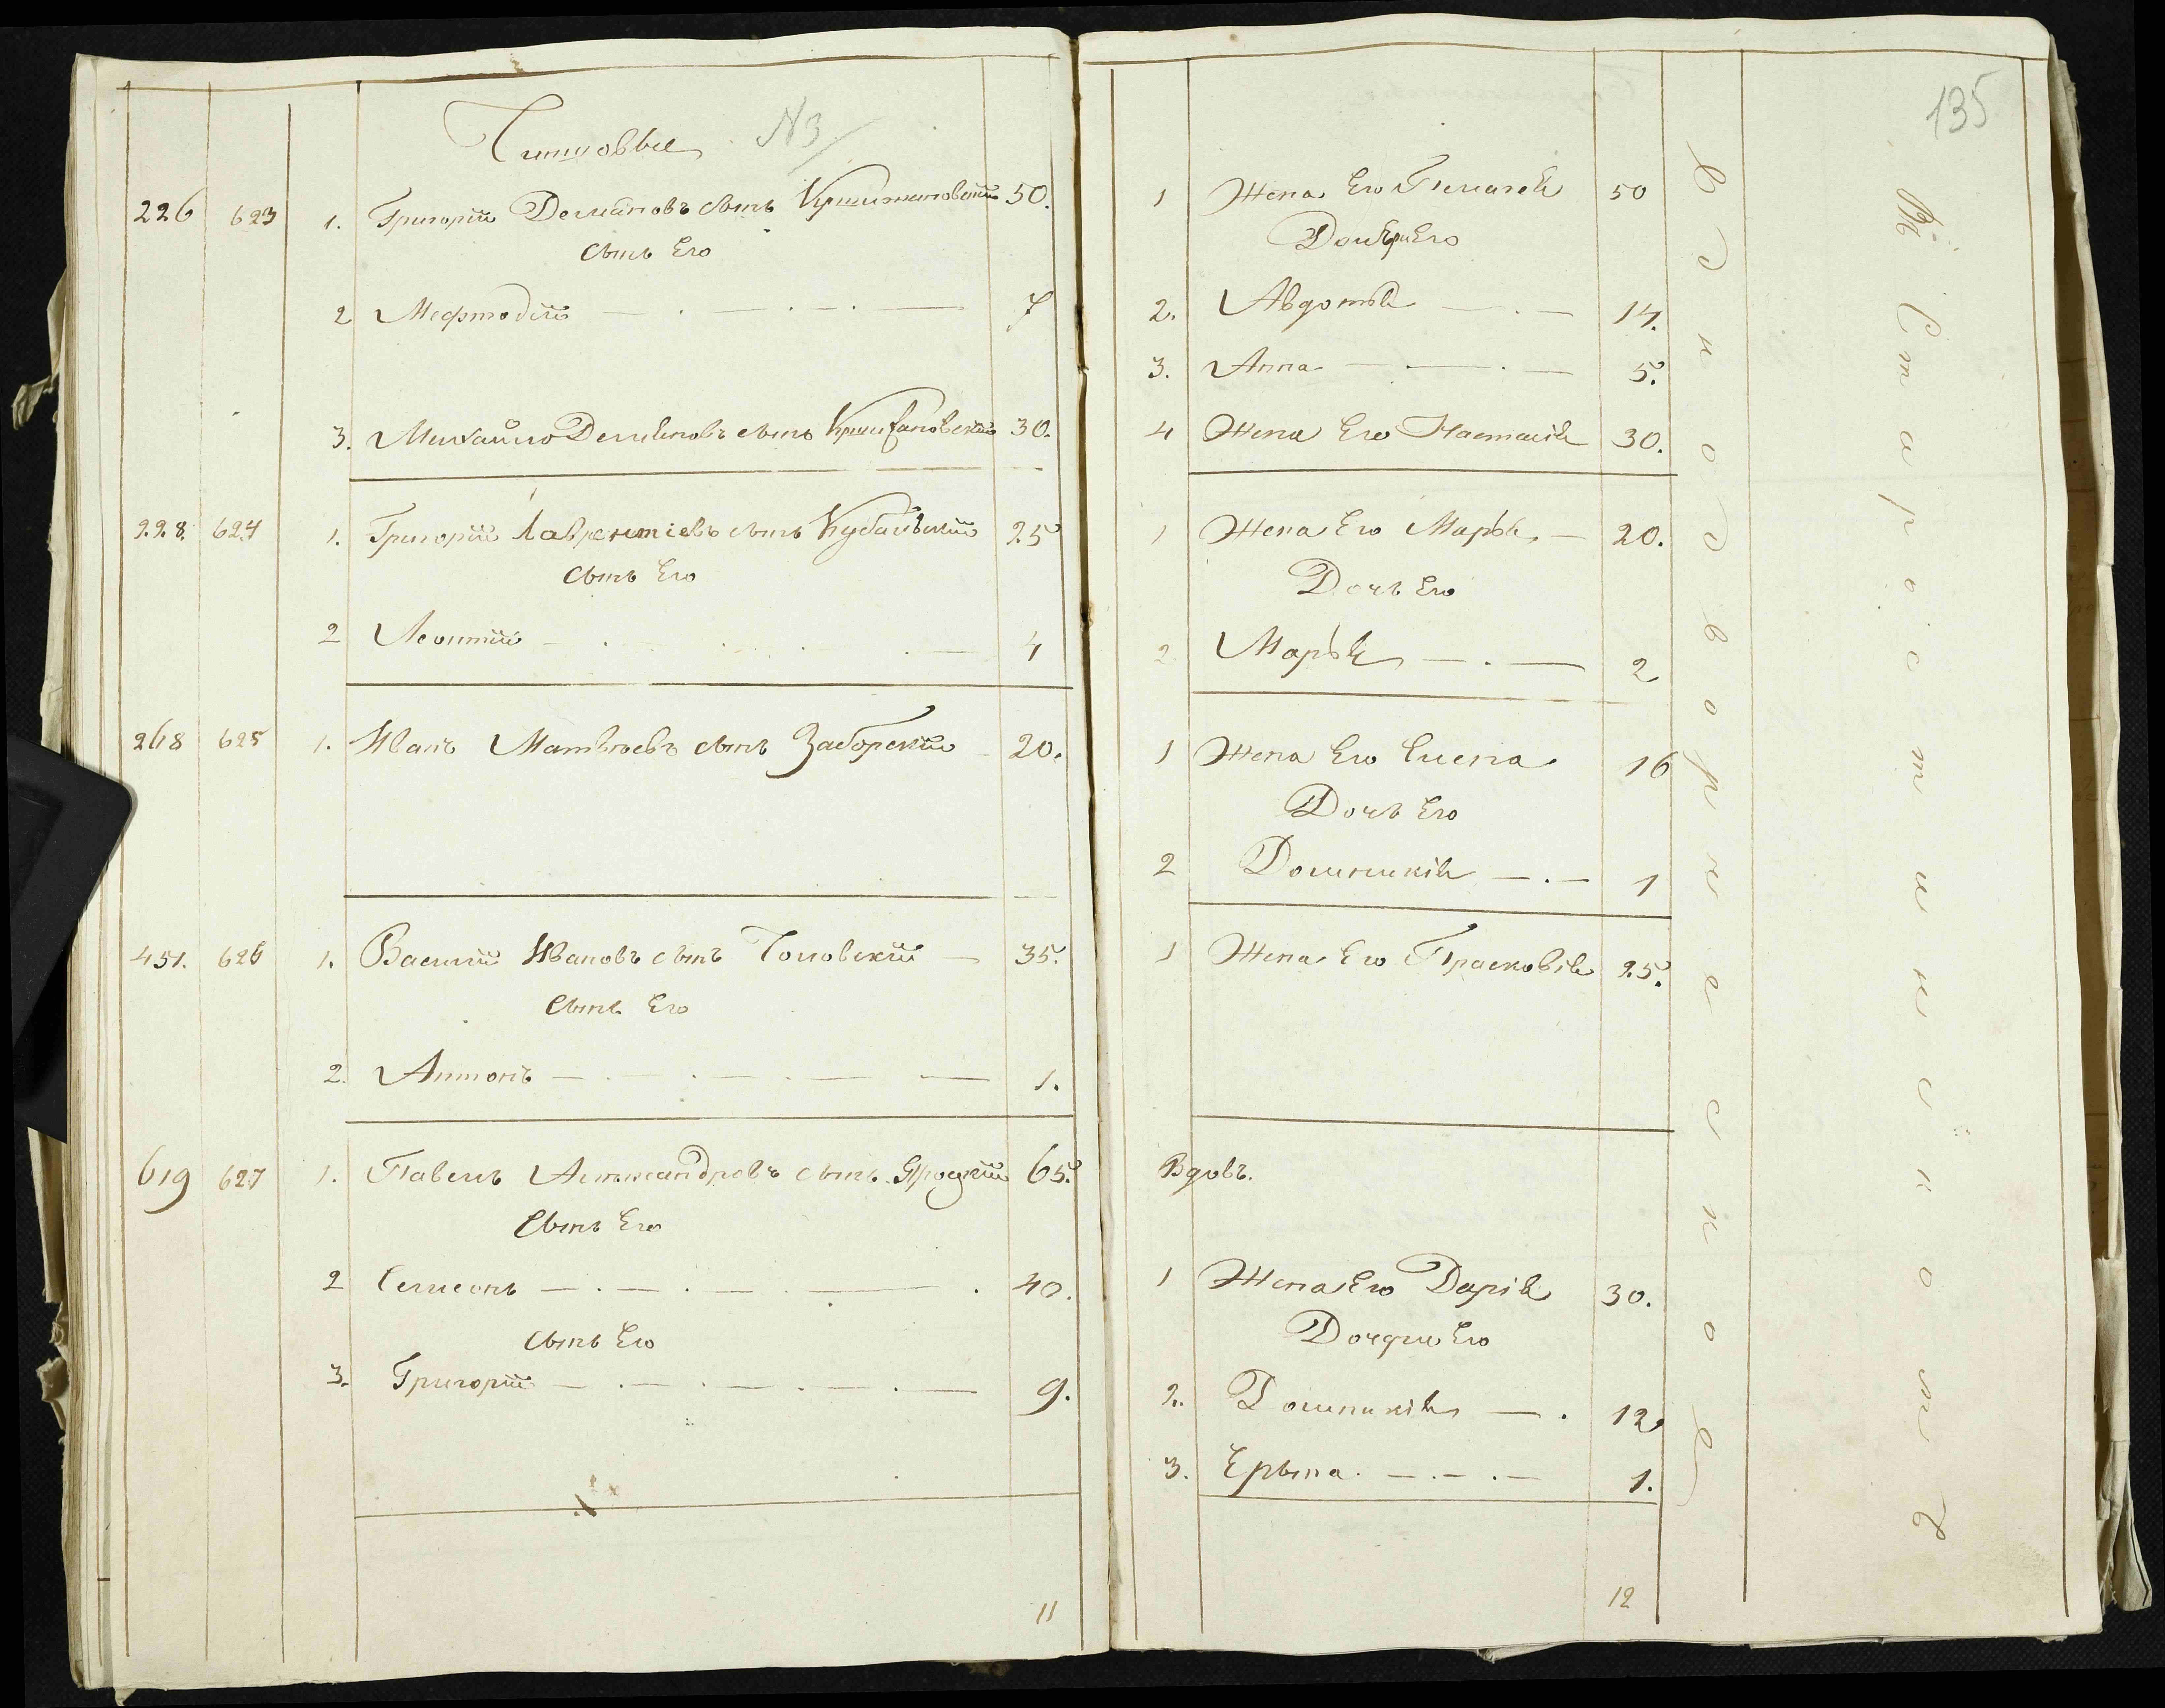 Чиншовые N3
226 623 1. Григорій Демьановъ сынъ Кришжановскій 50.
сынъ Его
2 Мефтодій 7
3. Михайло Демьяновъ сынъ Кришановскій 30.
228. 624 1. Григорій Лаврентіевъ сынъ Кубаѣвскій 25
сынъ Его
2 Леонтій 4
268 625 1. Иванъ Матвѣевъ сынъ Заборскій 20.
451. 626 1. Василій Ивановъ сынъ Головскій 35.
сынъ Его
2. Антонъ 1.
619 627 1. Павелъ Алекъсандровъ сынъ Яроцкій 65.
Сынъ Его
2 Семеонъ 40.
сынъ Его
3. Григорій 9.
11
135
1 Жена Его Пелагея 50
Дочери Его
2. Авдотья 14.
3. Анна 5.
4 Жена Его Настасія 30.
1 Жена Его Марья 20.
Дочь Его
2 Марья 2
1 Жена Его Елена 16
Дочь Его
2 Доминикія 1
1 Жена Его Прасковія 25.
Вдовъ.
1 Жена Его Дарія 30.
Дочери Его
2. Доминикія 12
3. Ерына 1.
12
Въ Старостинскомъ